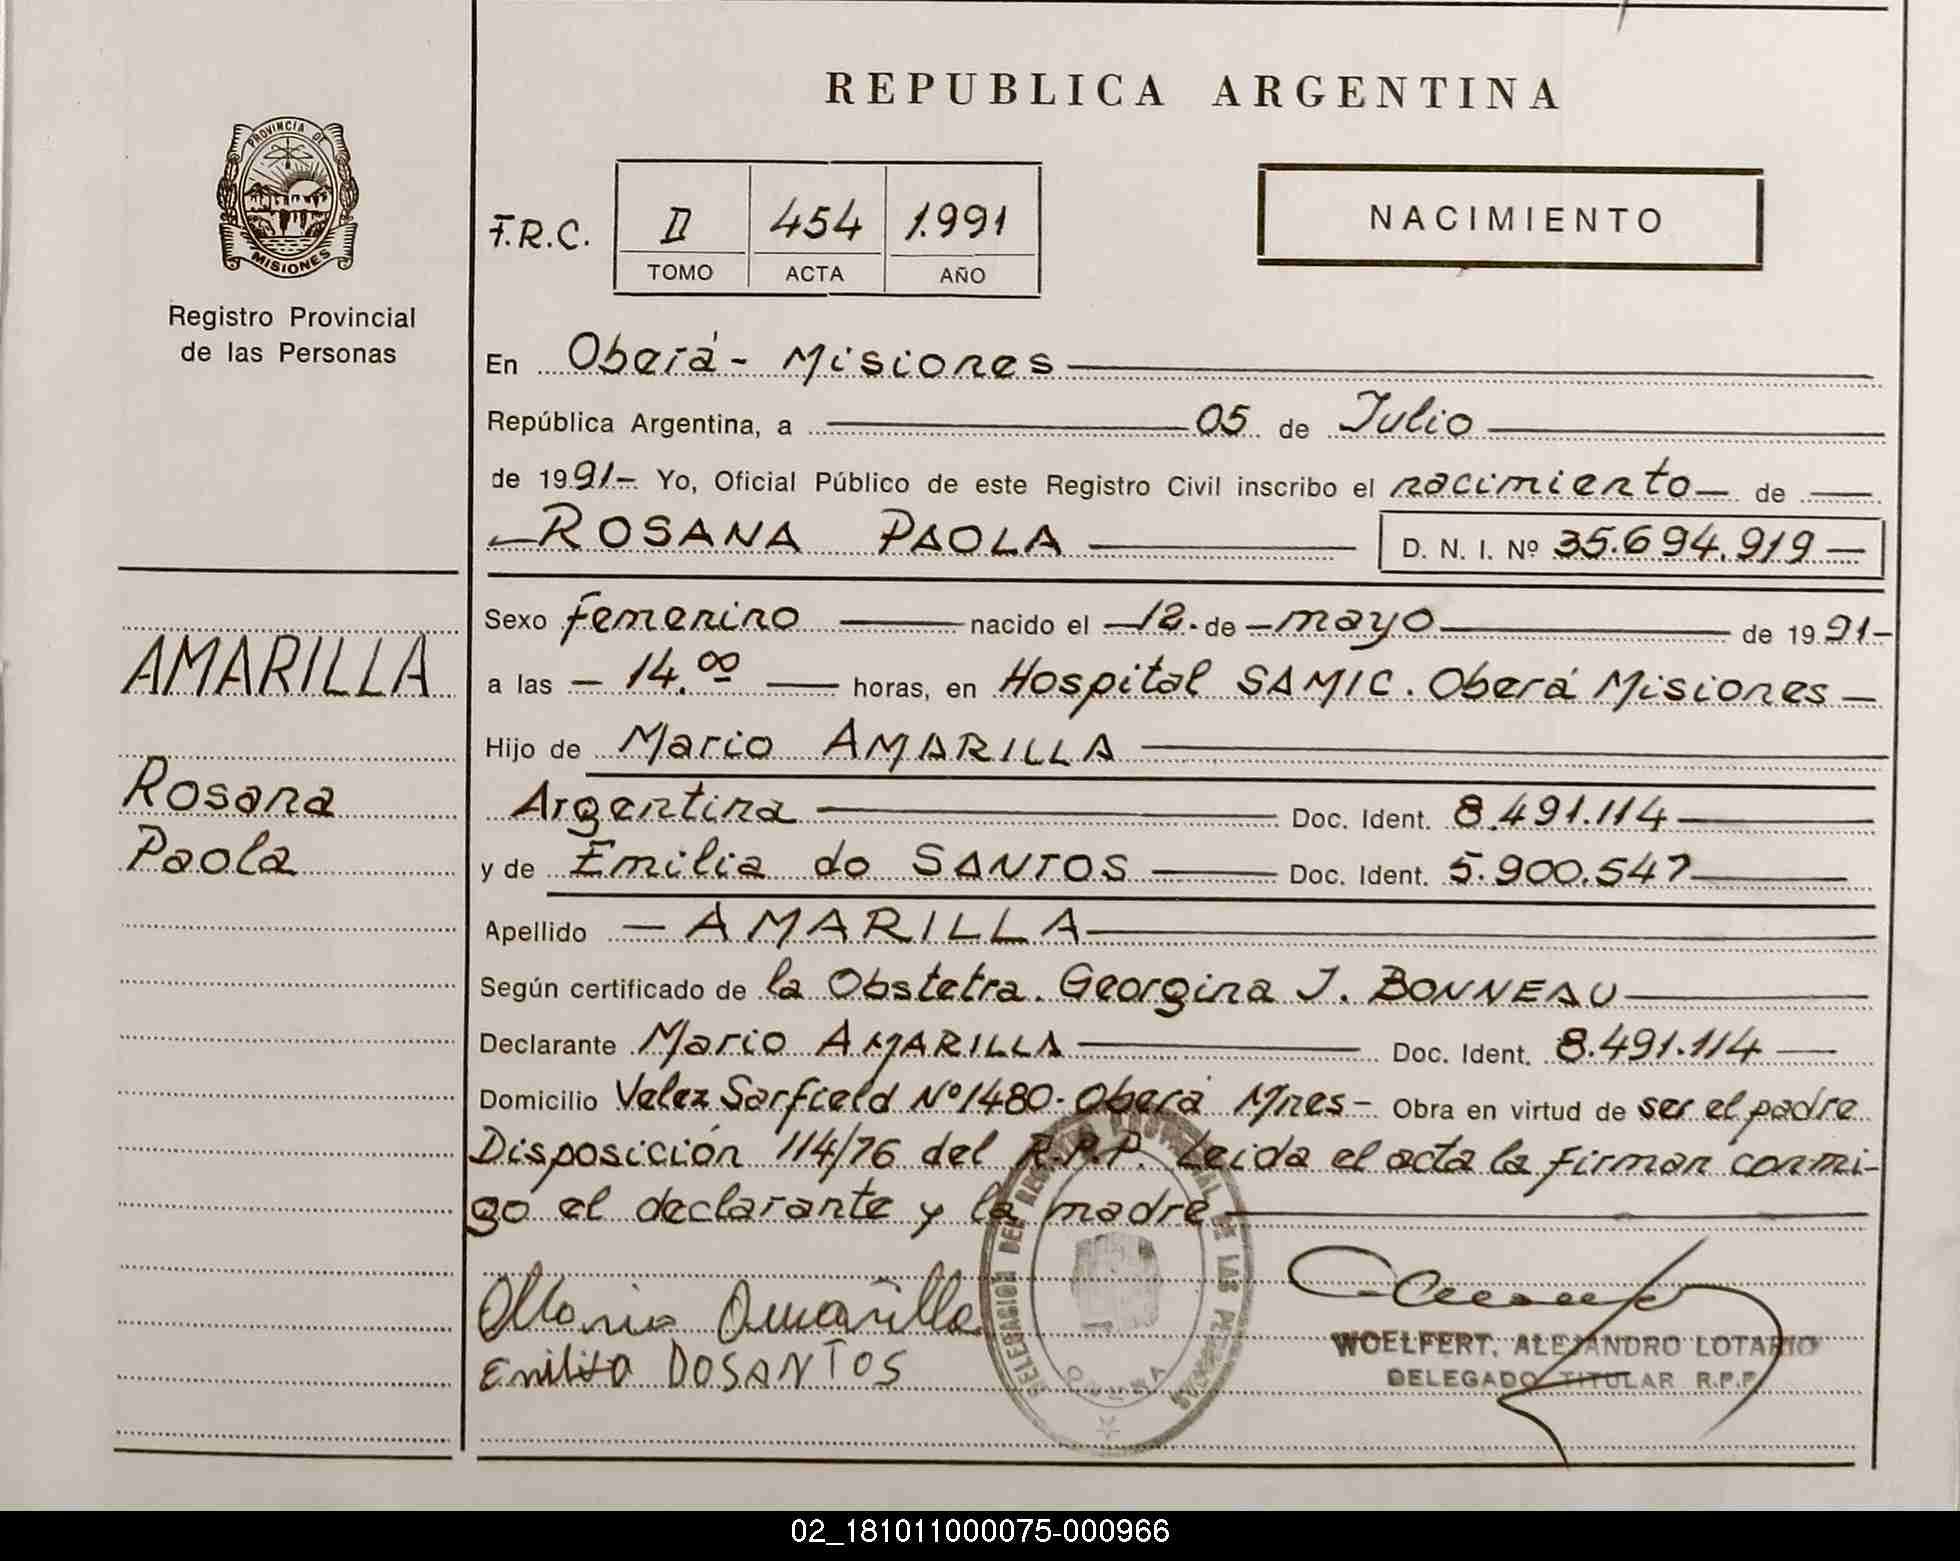 REPUBLICA ARGENTINA
PROVINCIA DE
MISIONES
Registro Provincial
de las Personas
F.R.C. II 454 1.991
TOMO ACTA AÑO
NACIMIENTO
En Oberá - Misiones
República Argentina, a 05 de Julio
de 1991- Yo, Oficial Público de este Registro Civil inscribo el nacimiento de
ROSANA PAOLA D. N. I. Nº 35.694.919
AMARILLA
Rosana
Paola
Sexo femenino nacido el 12 de mayo de 1991-
a las 14.00 horas, en Hospital SAMIC. Oberá Misiones
Hijo de Mario AMARILLA
Argentina Doc. Ident. 8.491.114
y de Emilia do SANTOS Doc. Ident. 5.900.547
Apellido AMARILLA
Según certificado de la Obstetra. Georgina J. BONNEAU
Declarante Mario AMARILLA Doc. Ident. 8.491.114
Domicilio Velez Sarfield Nº 1480. Oberá Mnes- Obra en virtud de ser el padre
Disposición 114/76 del R.P.P. Leida el acta la firman conmi-
go el declarante y la madre
Mario Amarilla
Emilia DOSANTOS
DELEGACION DEL REGISTRO PROVINCIAL DE LAS PERSONAS
WOELFERT, ALEJANDRO LOTARIO
DELEGADO TITULAR R.P.P.
02_181011000075-000966